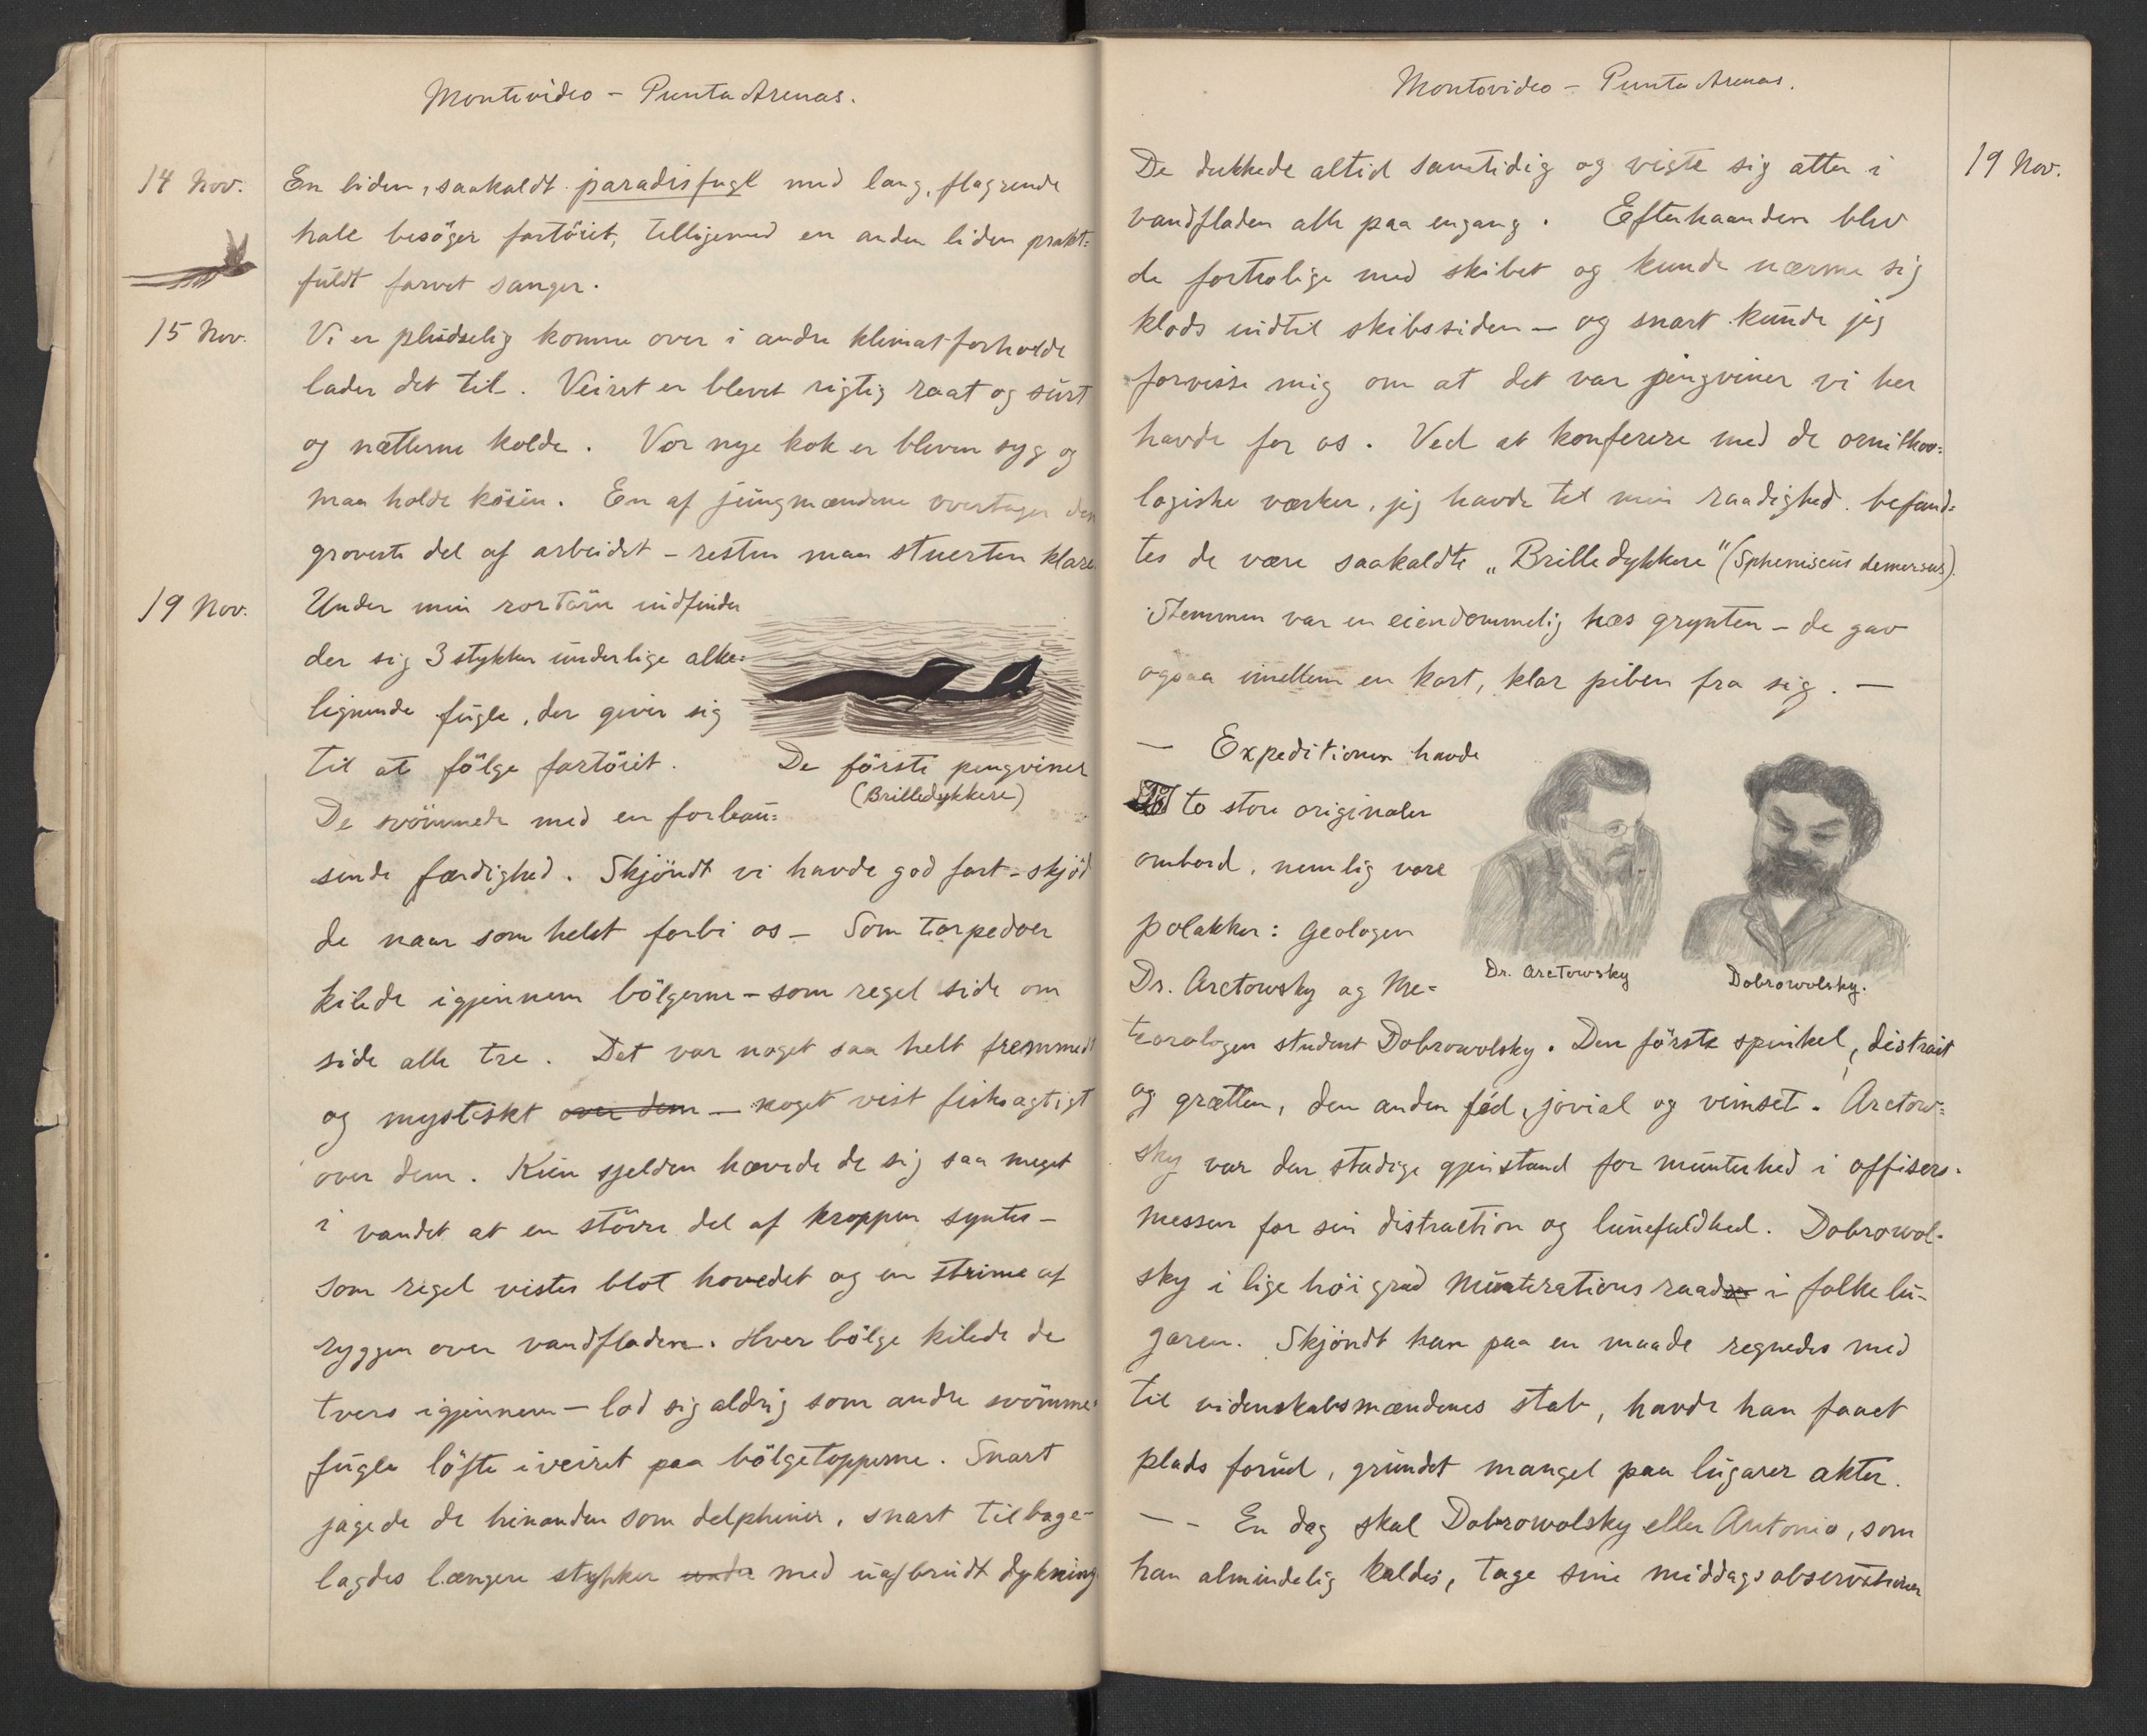 Montevideo – Punta Arenas.
14 Nov. En liden, saakaldt paradisfugl med lang, flagrende
hale besöger fartöiet, telligemed en anden liden prakt=
fuldt farvet sanger.
15 Nov. Vi er pludselig komne over i andre klimatforholde
lader det til. Veiret er blevet rigtig raat og surt
og nætterne kolde. Vor nye kok er bleven syg og
maa holde köien. En af jungmændene overtager den
groveste del af arbeidet – resten maa stuerten klare
19 Nov. Under min rortörn indfinder
der sig 3 stykker underlige alke=
lignende fugle, der giver sig
til at fölge fartöiet.
De förste pengviner
(Brilledykkere)
De svömmede med en forbau=
sende færdighed. Skjöndt vi havde god fart – skjöd
de naar som helst forbi os – Som torpedoer
kilede igjennem bölgerne – som regel side om
side alle tre. Det var noget saa helt fremmed
og mystiskt over dem – noget vist fiskeagtigt
over dem. Kun sjelden hævede de sig saa meget
i vandet at en större del af kroppen syntes –
som regel vistes blot hovedet og en strime af
ryggen over vandfladen. Hver bölge kilede de
tvers igjennem – lod sig aldrig som andre svömme=
fugle löfte iveiret paa bölgetopperne. Snart
jagede de hinanden som delphiner, snart tilbage-
lagdes længere stykker under med uafbrudt dykning
Montovideo – Punta Arenas.
19 Nov.
De dukkede altid samtidig og viste sig atter i
vandfladen alle paa engang. Efterhaanden blev
de fortrolige med skibet og kunde nærme sig
klods indtil skibssiden – og snart kunde jeg
forvisse mig om at det var pengviner vi her
havde for os. Ved at konferere med de ornitho=
logiske værker, jeg havde til min raadighed befand=
tes de være saakaldte „Brilledykkere" (Spheniscus demersus).
Stemmen var en eiendommelig hæs grynten – de gav
ogsaa imellem en kort, klar piben fra sig. —
— Expeditionen havde
to store originaler
ombord, nemlig vore
polakker: Geologen
Dr. Arctowsky og Me=
Dr. Arctowsky
Dobrowolsky.
teorologen student Dobrowolsky. Den förste spinkel, distrait
og grætten, den anden fed, jovial og vimset. Arctow=
sky var den stadige gjenstand for munterhed i offisers-
messen for sin distraction og lunefuldhed. Dobrowol-
sky i lige höi grad Munterationsraad i folkelu-
garen. Skjöndt han paa en maade regnedes med
til videnskabsmændenes stab, havde han faaet
plads forud, grundet mangel paa lugarer akter.
— – En dag skal Dobrowolsky eller Antonio, som
han almindelig kaldes, tage sine middagsobservationer